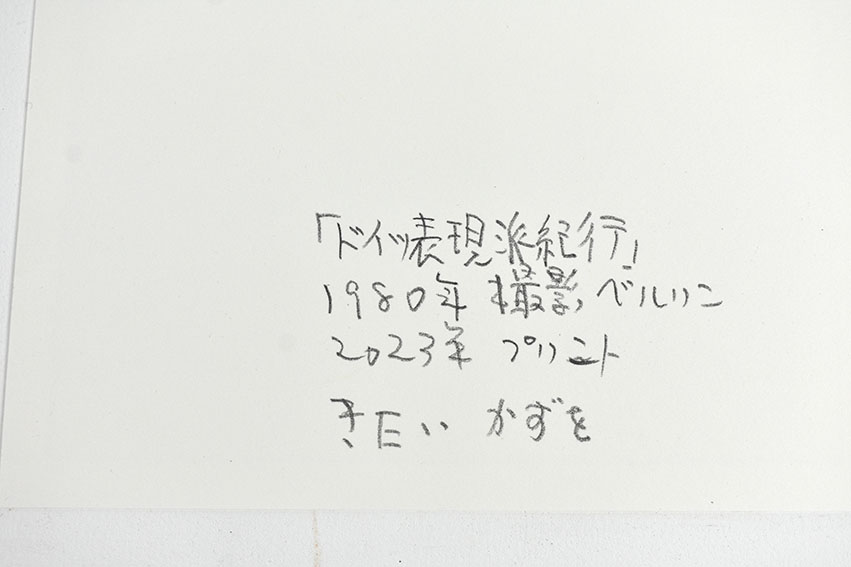 「ドイツ表現派紀行」
1980年 撮影 ベルリン
2023年 プリント
きたい かずを